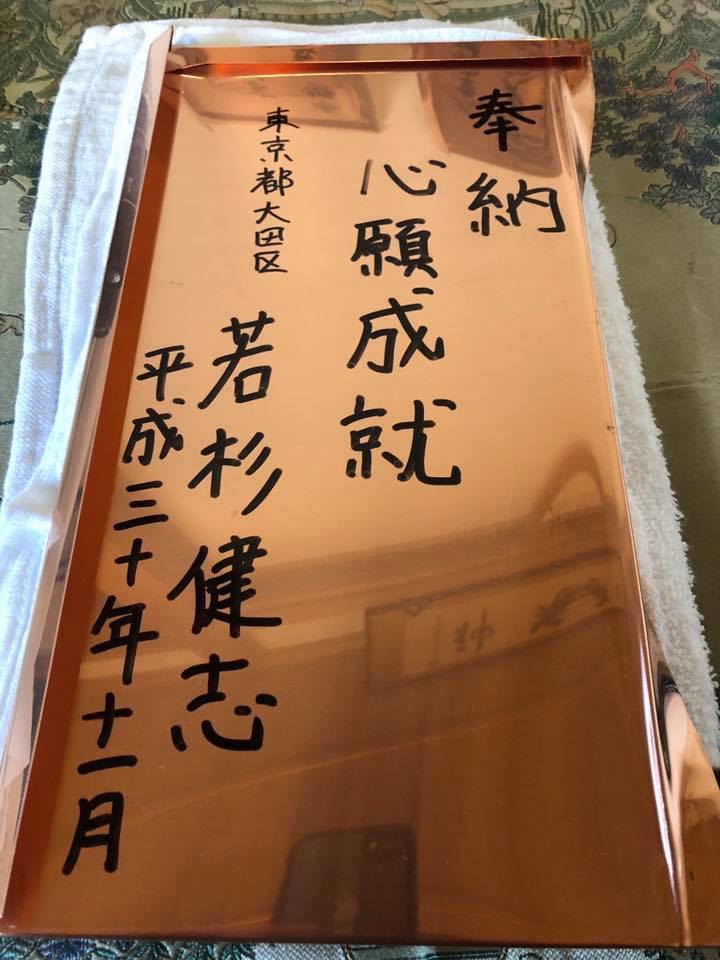 奉納
心願成就
東京都大田区
若杉健志
平成三十年十一月